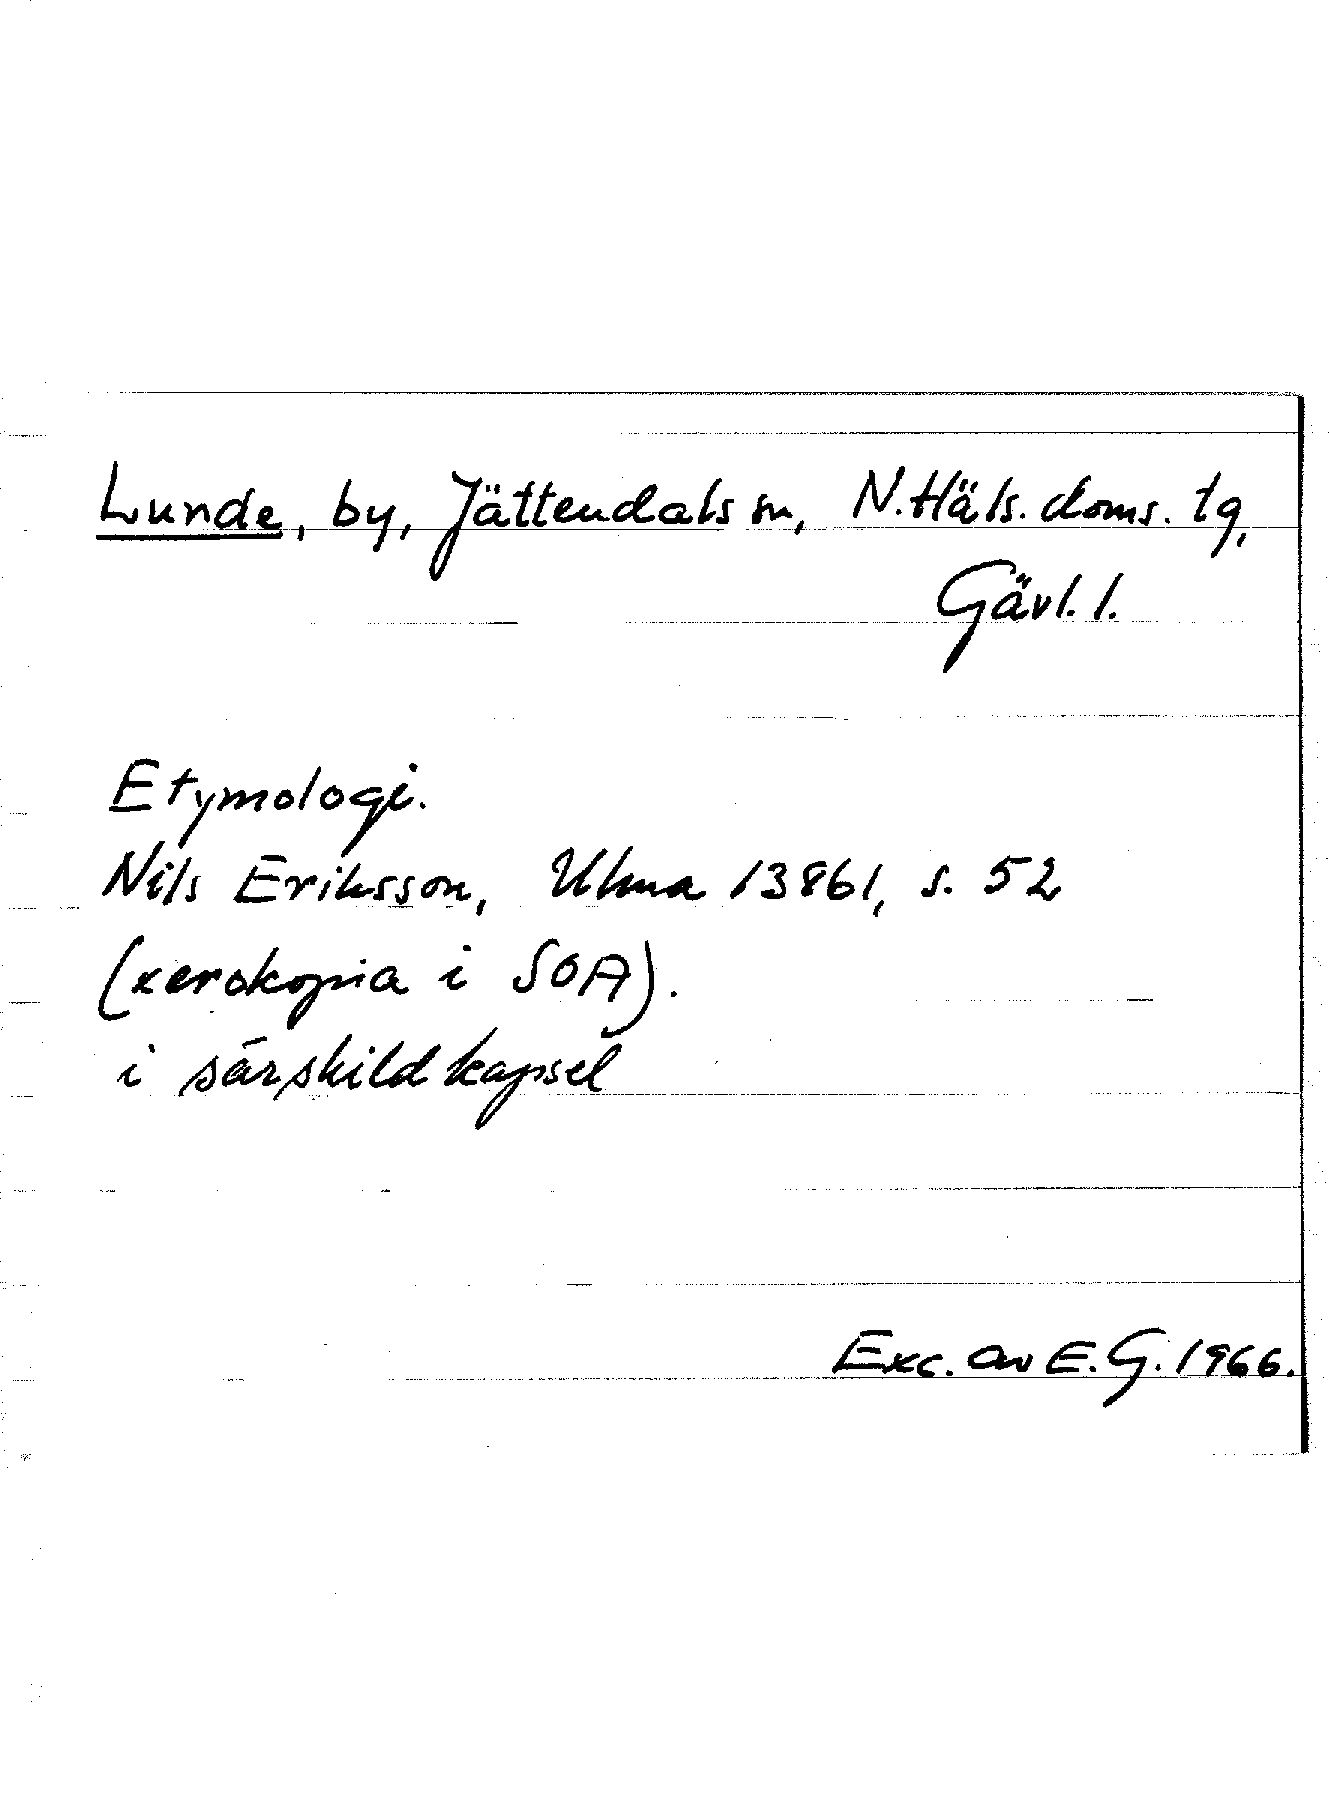 Lunde, by, Jättendals sn, N. Häls. doms. tg,
Gävl. l.
Etymologi.
Nils Eriksson, Ulma 13861, s. 52
(xerokopia i SOA).
i särskild kapsel
Exc. av E. G. 1966.